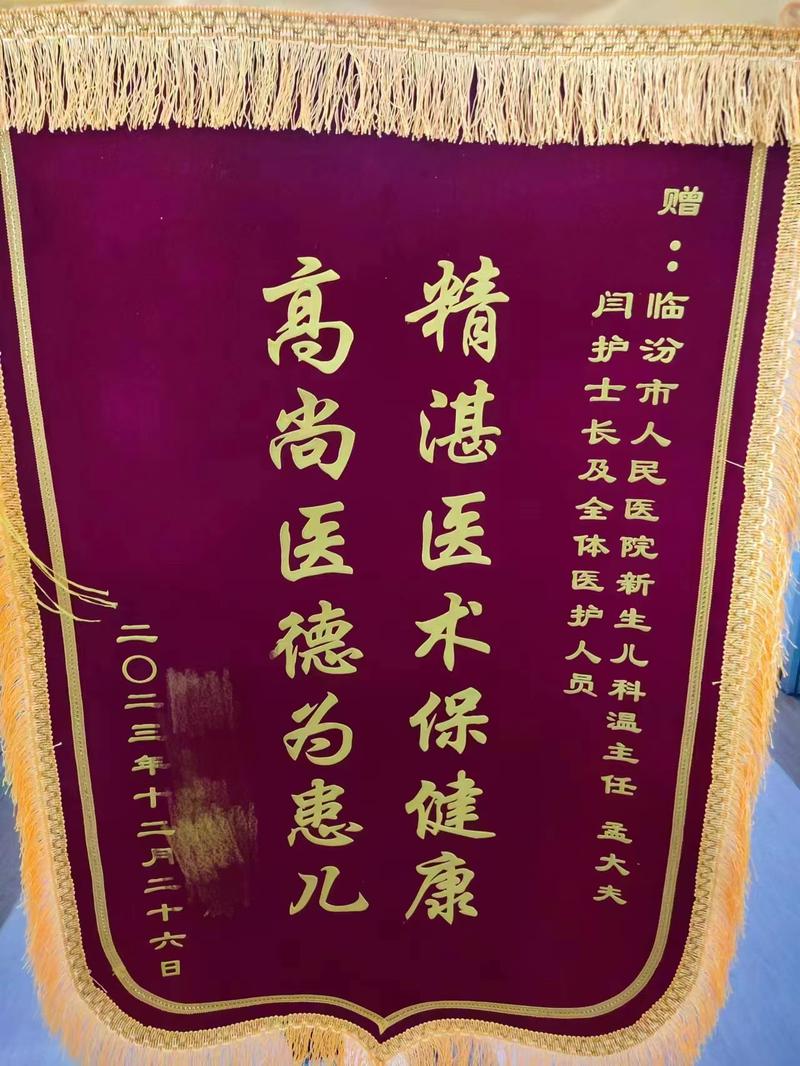 赠：
临汾市人民医院新生儿科温主任 孟大夫
闫护士长及全体医护人员
精湛医术保健康
高尚医德为患儿
二〇二三年十二月二十六日